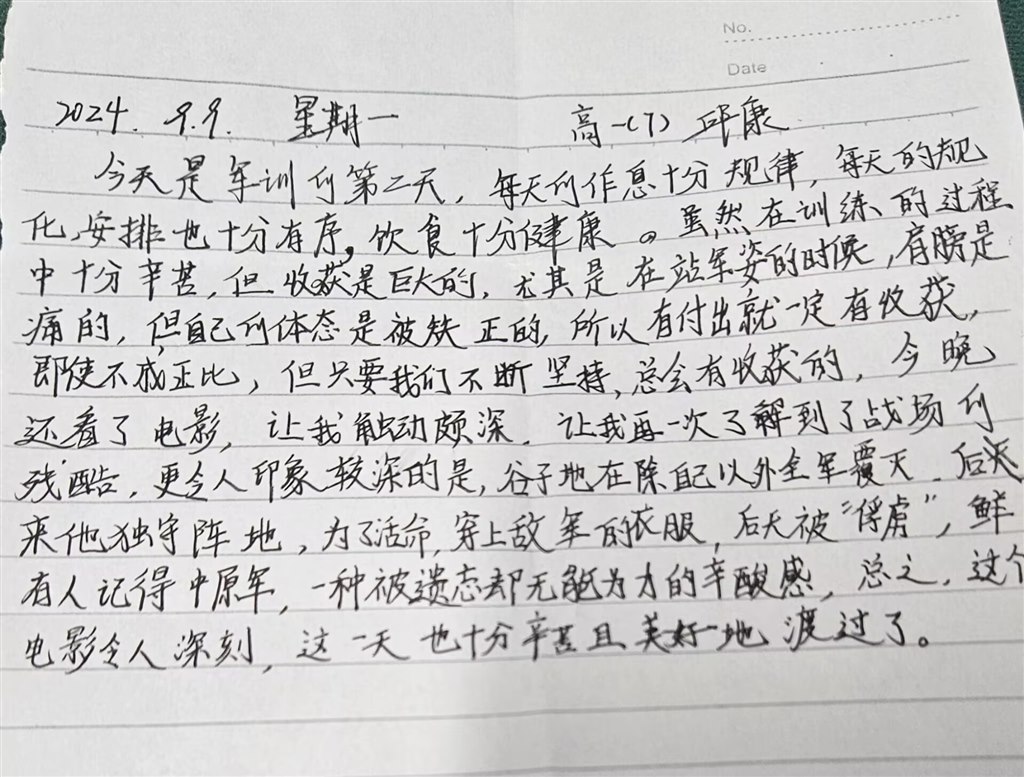 No.
Date
2024. 9.9. 星期一 高一(7) 邱康
今天是军训的第二天，每天的作息十分规律，每天的规
化，安排也十分有序，饮食十分健康。虽然在训练的过程
中十分辛苦，但收获是巨大的，尤其是在站军姿的时候，肩膀是
痛的，但自己的体态是被扶正的，所以有付出就一定有收获，
即使不成正比，但只要我们不断坚持，总会有收获的，今晚
还看了电影，让我触动颇深，让我再一次了解到了战场的
残酷，更令人印象较深的是，谷子地在除自己以外全军覆灭，后
来他独守阵地，为了活命，穿上敌军的衣服，后天被“俘虏”，鲜
有人记得中原军，一种被遗忘却无能为力的辛酸感，总之，这个
电影令人深刻，这一天也十分辛苦且美好地渡过了。